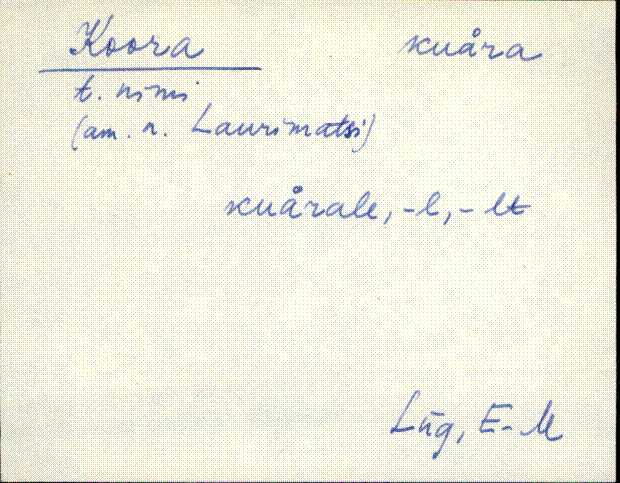 Koora kuåra
t. nimi
(am. n. Laurimatsi)
kuårale, -l, - lt
Lüg, E-M